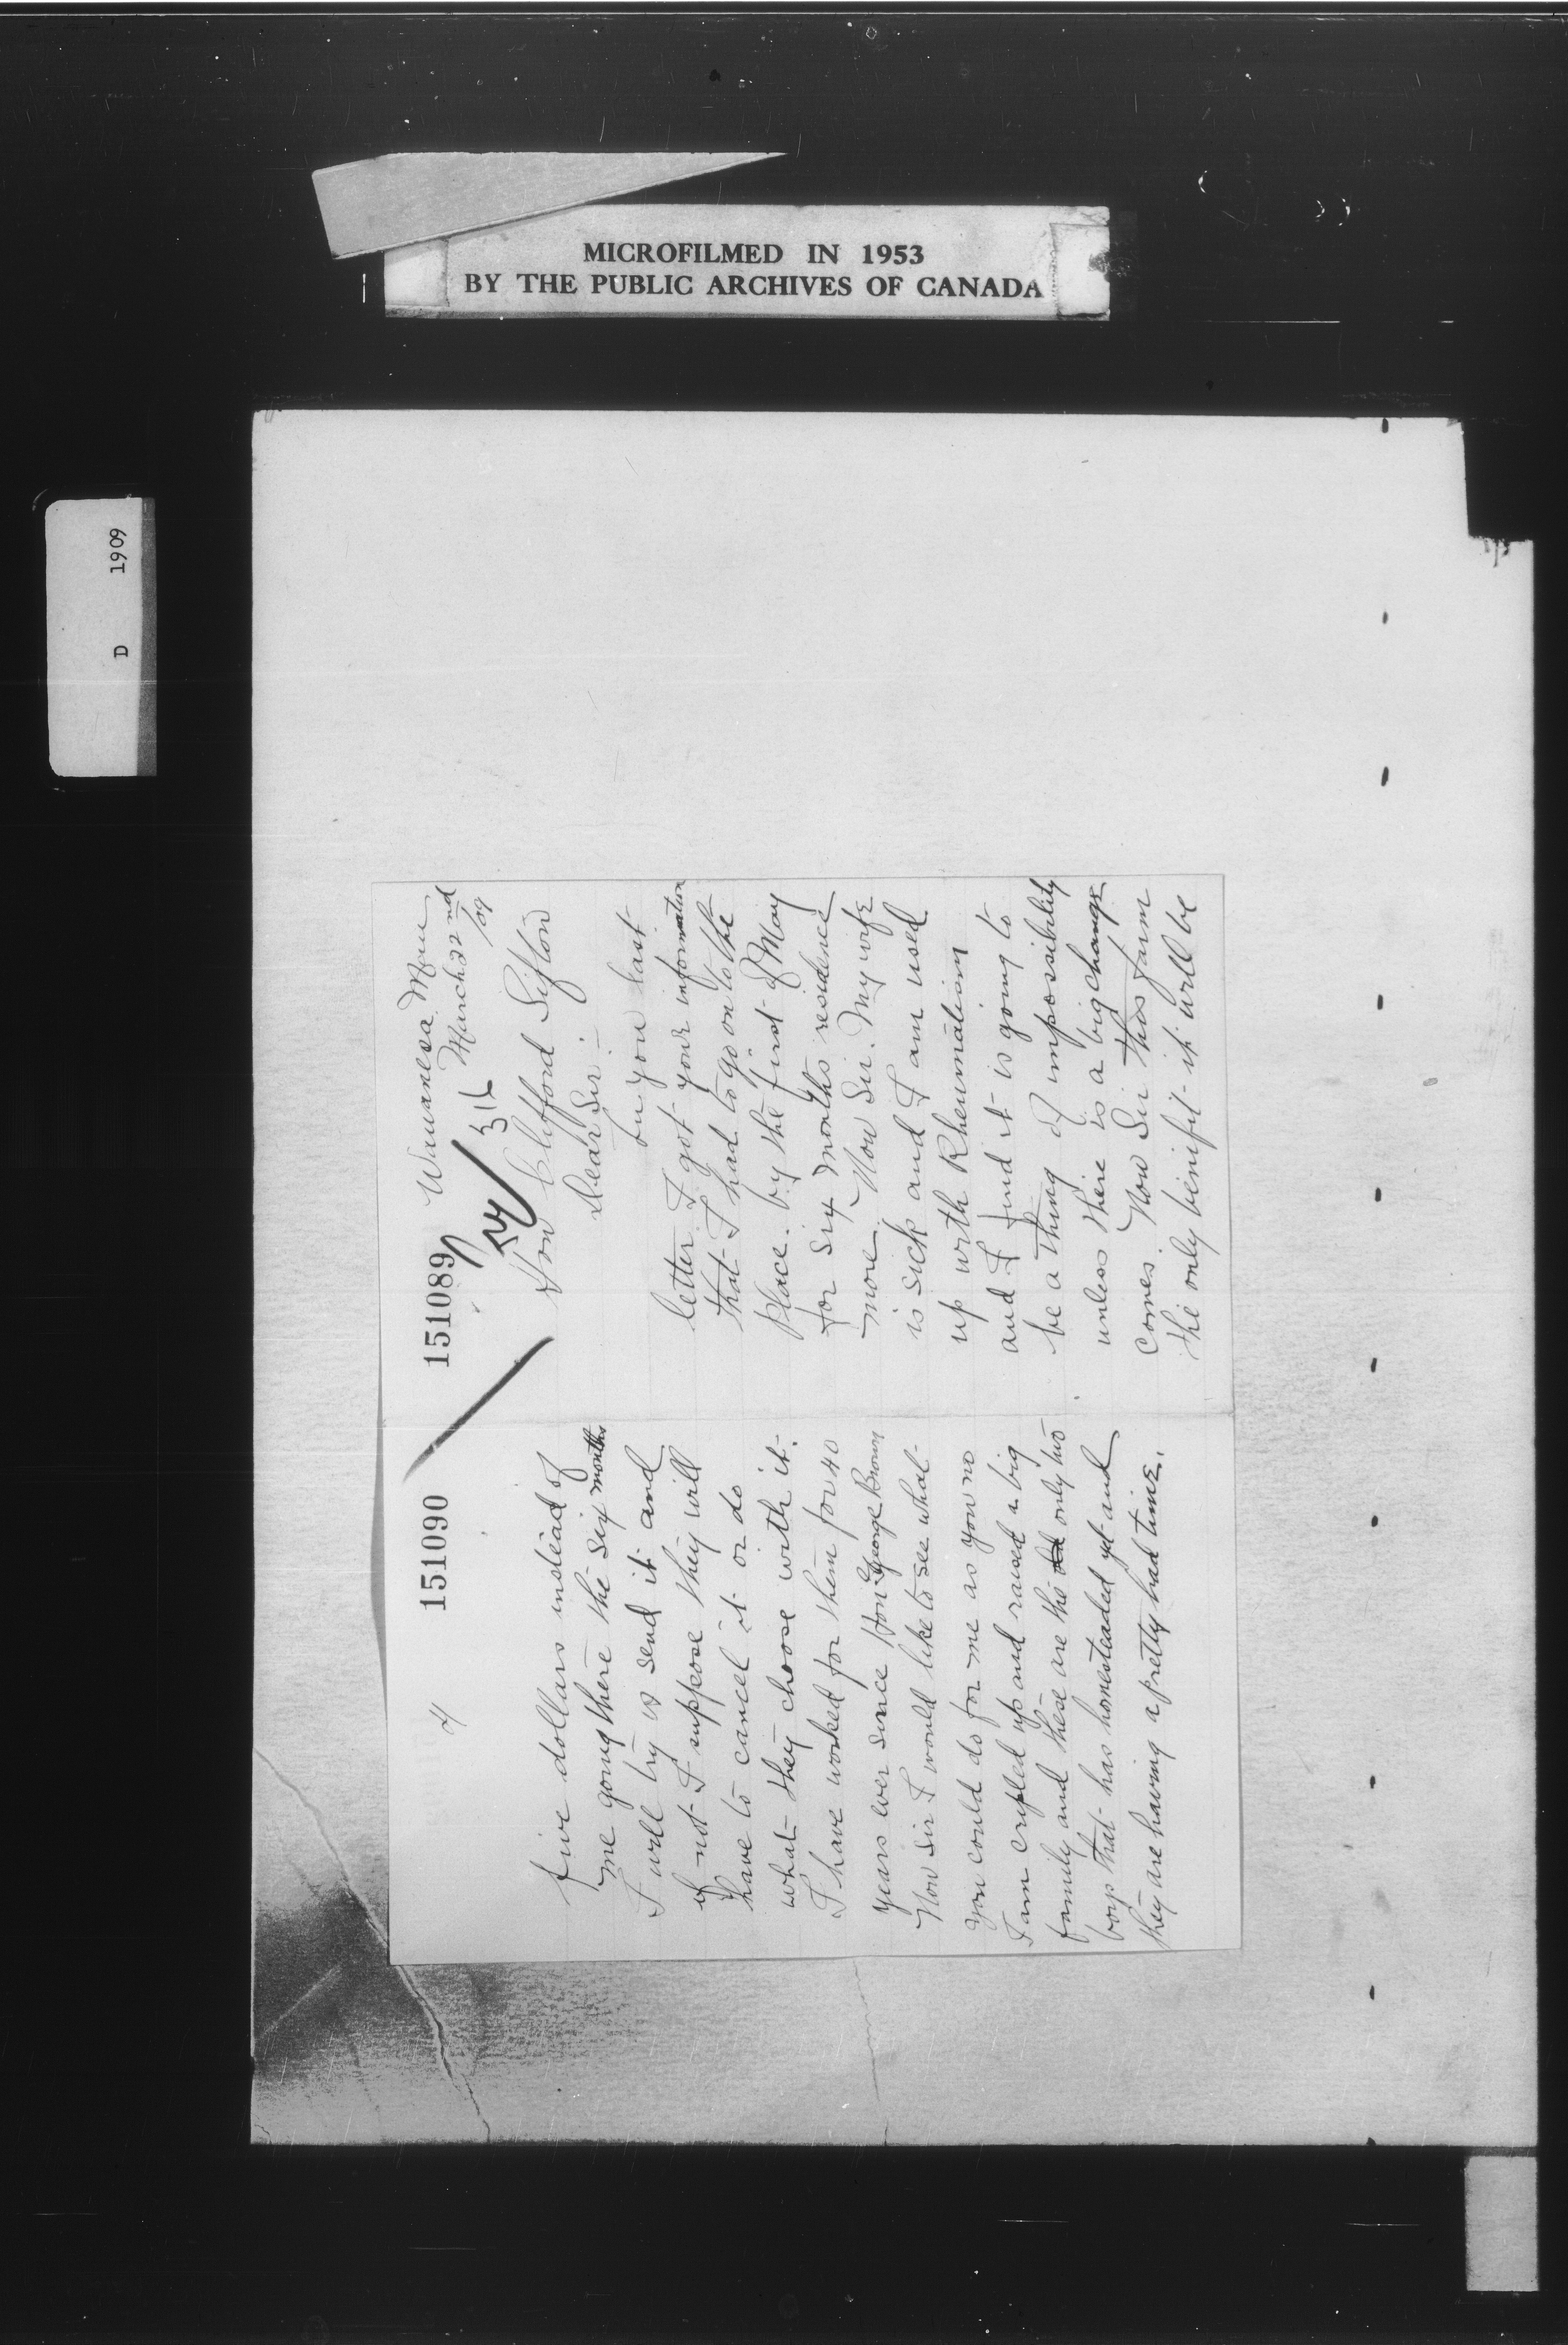 MICROFILMED IN 1953
BY THE PUBLIC ARCHIVES OF CANADA
D 1909
151089
Wawanesa Man
March 22nd
/09
Hon Clifford Sifton
Dear Sir :-
In you last
letter I got your information
that I had to go on to the
place by the first of May
for six months residence
more. Now Sir. My wife
is sick and I am used
up with Rheumatism
and I find it is going to
be a thing of impossibility
unless there is a big change
comes. Now Sir this farm
the only benifit it will be
151090
4
five dollars instead of
me going there the six months
I will try & send it and
if not I suppose they will
have to cancel it or do
what they choose with it.
I have worked for them for 40
years ever since Hon George Brown
Now Sir I would like to see what
you could do for me as you no
I am cripled up and raised a big
family and these are the only two
boys that has homesteaded yet and
they are having a pretty hard time.